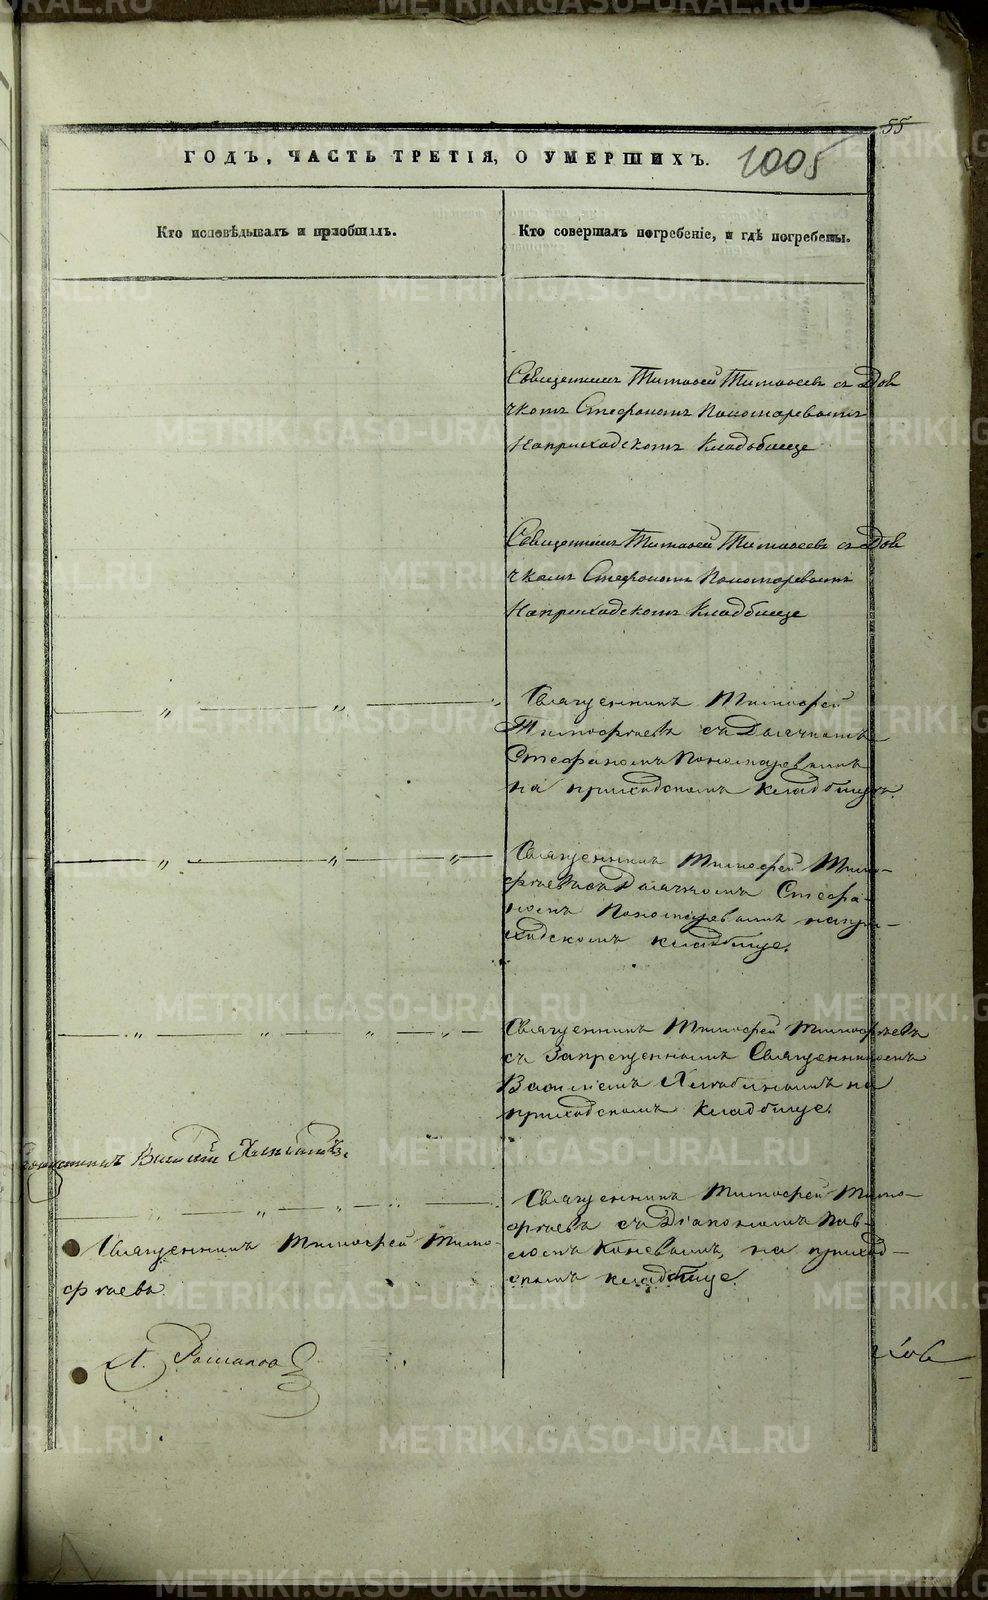 55
ГОДЪ, ЧАСТЬ ТРЕТІЯ, О УМЕРШИХЪ.
1005
Кто исповѣдывалъ и пріобщалъ.
Кто совершалъ погребеніе, и гдѣ погребены.
Священникъ Тимофей Тимофеевъ съ Дья
чкомъ Стефаномъ Пономаревымъ
На приходскомъ Кладбище
Священникъ Тимофей Тимофеевъ съ Дья
чкомъ Стефаномъ Пономаревымъ
На приходскомъ Кладбище
Священникъ Тимофей
Тимофѣевъ съ Дьячкомъ
Стефаномъ Пономаревымъ
на приходскомъ кладбищѣ.
Священникъ Тимофей Тимо-
фѣевъ съ Дьячкомъ Стефа-
номъ Пономаревымъ на при-
ходскомъ кладбище.
Священникъ Тимофей Тимофѣевъ
съ Запрещеннымъ Священникомъ
Василіемъ на
приходскомъ Кладбище.
Василій
Священникъ Тимофей Тимо-
фѣевъ съ Діакономъ Пав-
ломъ Коневымъ, на приход-
скомъ кладбище.
Священникъ Тимофей Тимо-
фѣевъ
METRIKI.GASO-URAL.RU